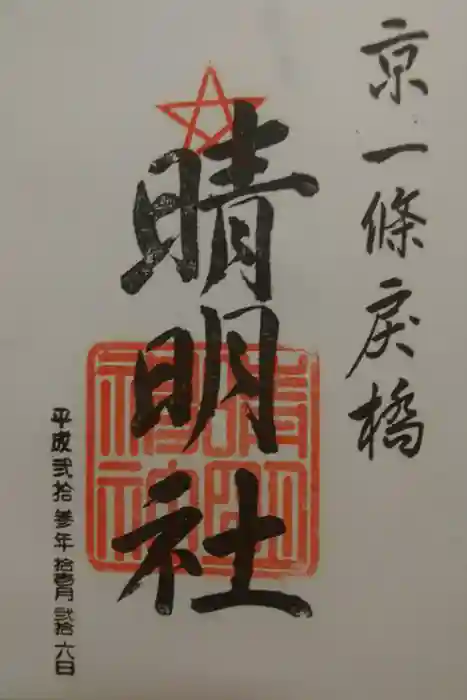 京一條戾橋
晴明社
晴明神社
平成弐拾参年拾壱月弐拾六日